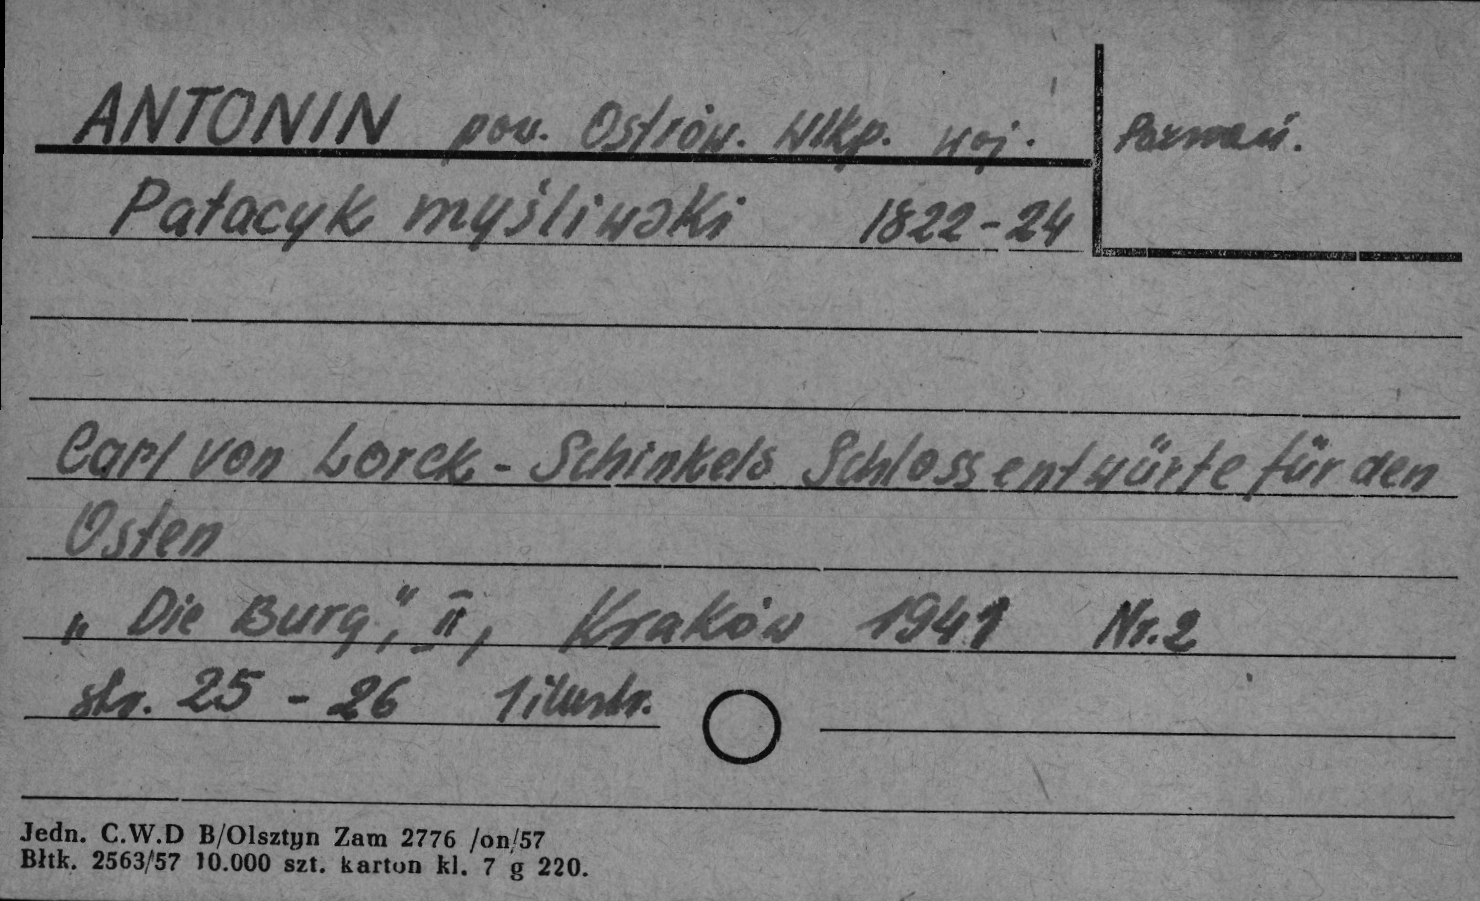 ANTONIN pow. Ostrów. Wlkp. woj. Poznań.
Pałacyk myśliwski 1822-24
Carl von Lorck - Schinkels Schlossentwürfe für den
Osten
„Die Burg", II, Kraków 1941 Nr. 2
str. 25 - 26 1 ilustr.
Jedn. C.W.D B/Olsztyn Zam 2776 /on/57
Błtk. 2563/57 10.000 szt. karton kl. 7 g 220.